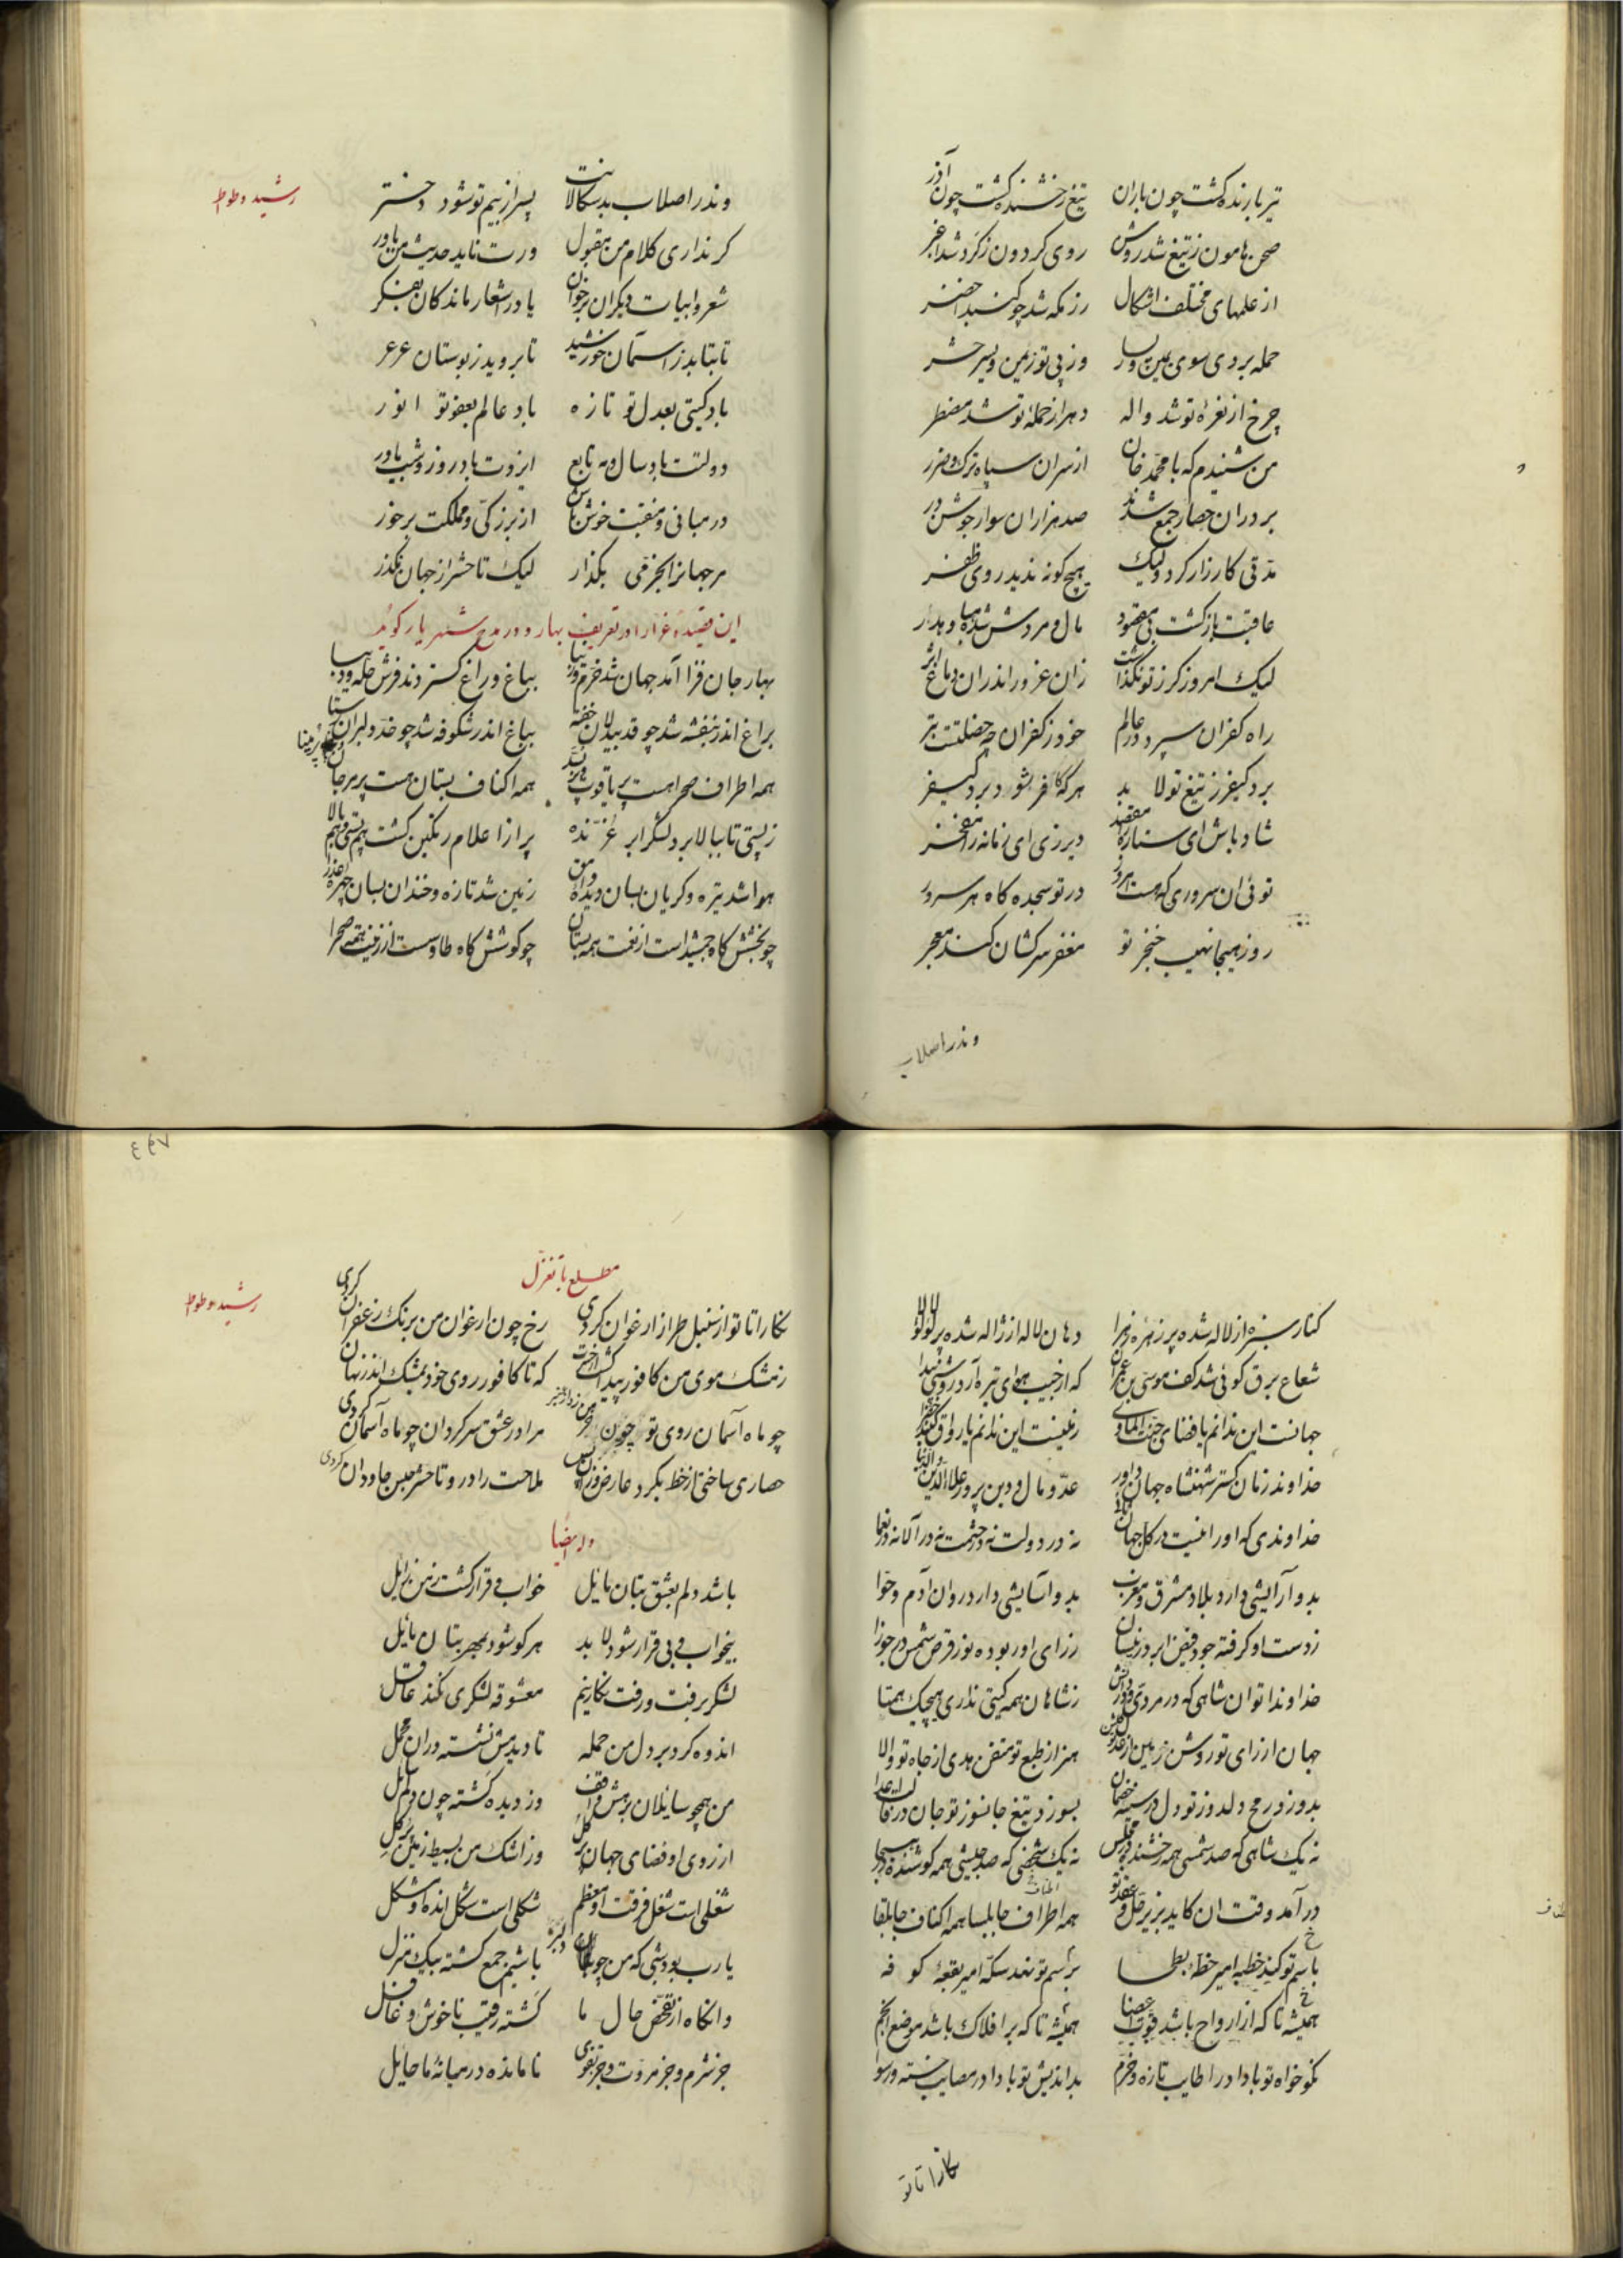 تیر بارنده کشت چون باران تیغ رخشنده کشت چون آذر
صحن هامون ز تیغ شد روشن روی کردون ز کرد شد اغبر
از علمهای مختلف اشکال رزمکه شد چو کنبد اخضر
حمله بردی سوی یمین و یسار وز پی تو زمین و پسر حشر
چرخ از نعرهٔ تو شد واله دهر از حملهٔ تو شد مضطر
من شنیدم که با محمد خان از سران سپاه ترک و خزر
بر دران حصار جمع شدند صد هزاران سوار جوشن ور
مدتی کارزار کرد ولیک هیچ کونه ندید روی ظفر
عاقبت باز کشت بی مقصود مال و مردمش شده هبا و هدر
لیک امروز کرز تو نکذاشت زان غرور اندران دماغ اثر
راه کفران سپرد در عالم خود ز کفران چه خصلتست بتر
برد کیفر ز تیغ تو لا بد هر که کافر شود برد کیفر
شاد باش ای ستاره مفقد دیر زی ای زمانه را مفخر
تو ئی ان سروری که هست امروز در تو سجده کاه هر سرور
روز هیجا نهیب خنجر تو مغفر سرکشان کند معجر
وندر اصلاب
رشید وطواط
وندر اصلاب بدسکالانت پسر از بیم تو شود دختر
کر نداری کلام من مقبول ورت ناید حدیث من باور
شعر و ابیات دیکران برخوان یا در اشعار ماندکان بنکر
تا بتابد ز آسمان خورشید تا بروید ز بوستان عرعر
باد کیتی بعدل تو تازه باد عالم بعفو تو انور
دولتت باد سال و مه تابع ایزدت باد روز و شب یاور
در مبانی و منقبت خوش باش از بزرکی و مملکت برخور
مر جهانرا بخرمی بکذار لیک تا حشر از جهان مکذر
این قصیدهٔ غرا را در تعریف بهار و در مدح شهریار کوید
بهار جان فزا آمد جهان شد خرم و زیبا بباغ و راغ کستردند فرش حله و دیبا
براغ اندر بنفشه شد چو قد بیدلان خفته بباغ اندر شکوفه شد چو خد دلبران
همه اطراف صحرا هست پر یاقوت همه اکناف بستان هست پر مرجان پر مینا
ز پستی تا ببالا برد لشکر ابر غرنده پر از اعلام رنکین کشت هم پستی و هم بالا
هوا شد تیره و کریان بسان دیدهٔ وامق زمین شد تازه و خندان بسان چهرهٔ عذرا
چو بخشش کاه جمشید است از نعمت همه بستان چو کوشش کاه طاوسست از زینت همه صحرا
کنار سبزه از لاله شده پر زهرهٔ زهرا دهان لاله از ژاله شده پر لؤلؤ لالا
شعاع برق کوئی شد کف موسی بن عمران که از جیب هوای تیره آرد روشنی پیدا
جهانست این ندانم یا فضای جنة المأوی زمینست این ندانم یا رواق کنبد خضرا
خداوند زمان کستر شهنشاه جهان داور عدو مال و دین پرور علاء الدین والدنیا
خداوندی که او را نیست در کل جهان نه در دولت نه در حشمت نه در آلا نه در نعما
بدو آرایشی دارد بلاد مشرق و مغرب بدو آسایشی دارد روان آدم و حوا
ز دست او کرفته جود فیض ابر در نیسان ز رای او ربوده نور قرص شمس در جوزا
خداوندا توان شاهی که در مردی و در دانش ز شاهان همه کیتی نداری هیچیک همتا
جهان از رای تو روشن زمین از عدل تو کلشن هنر از طبع تو متقن هدی از جاه تو والا
بدوزد رمح دلدوز تو دل در سینهٔ خصمان بسوزد تیغ جانسوز تو جان در قالب اعدا
نه یک شاهی که صد شمسی همه رخشنده در مجلس نه یک شخصی که صد جیشی همه کوشنده در هیجا
در آمد وقت ان کاید بزیر حل و عقد تو همه اطراف جابلسا همه اکناف جابلقا
باسم تو کند خطبه امیر خطهٔ بطحا برسم تو نهد سکه امیر بقعهٔ کوفه
همیشه تا که از ارواح باشد قوت اعضا همیشه تا که بر افلاک باشد موضع انجم
نکو خواه تو بادا در اطایب تازه و خرم بداندیش تو بادا در مصایب خسته و رسوا
نکارا تا تو
رشید وطواط
مطلع با تغزل
نکارا تا تو از سنبل طراز ارغوان کردی رخ چون ارغوان من برنک زعفران کردی
ز مشک موی من کافور پیدا کشت که تا کافور روی خود بمشک اندر نهان کردی
چو ماه آسمان روی تو مرا در عشق سر کردان چو ماه آسمان کردی
حصاری ساختی از خط بکرد عارض ملاحت را درو تا حشر حبس جاودان کردی
وله ایضا
باشد دلم بعشق بتان مایل خواب و قرار کشت ز من زایل
بیخواب و بی قرار شود لا بد هر کو شود بمهر بتان مایل
لشکر برفت و رفت نکارینم معشوقه لشکری نکند عاقل
اندوه کرد بر دل من حمله تا دیدمش نشسته دران محمل
من همچو سایلان برهش واقف وز دیده کشته چون دلم سایل
از روی او فضای جهان پر کل وز اشک من بسیط زمین پر کل
شغلی است شغل فرقت او معظم شکلی است شکل انده او مشکل
یارب بود شبی که من باشیم جمع کشته بیک منزل
وانکاه از تفحص حال ما کشته رقیب ناخوش و غافل
جز شرم و جز مروت و جز تقوی نامانده در میانهٔ ما حایل